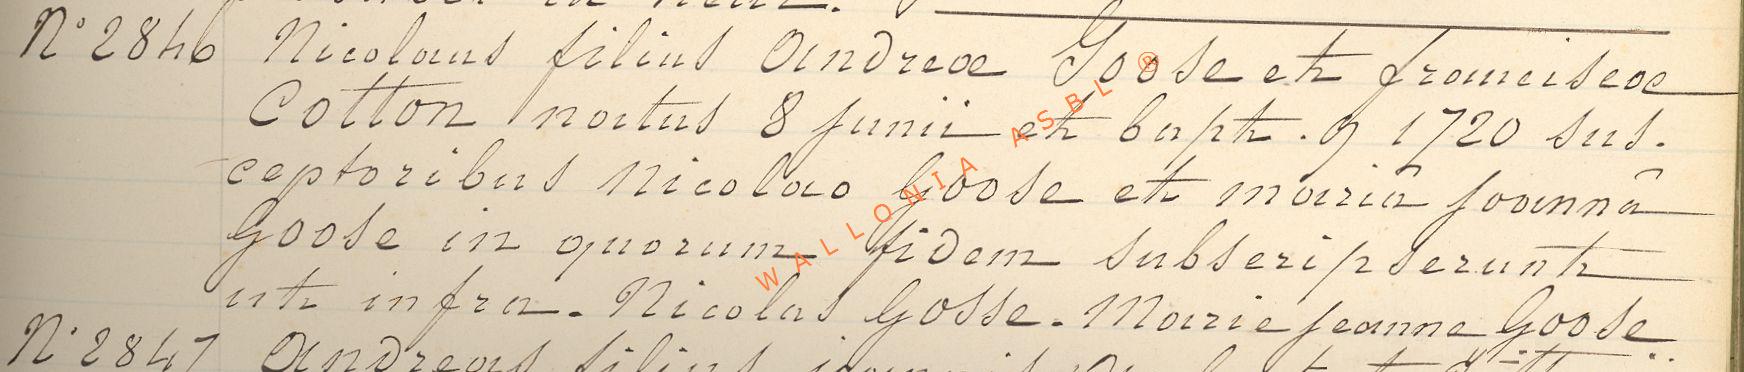 N° 2846 Nicolaus filius Andreæ Goose et franciscæ
Cotton natus 8 junii et bapt. 9 1720 sus-
ceptoribus Nicolao Goose et mariâ joannâ
Goose in quorum fidem subscripserunt
ut infra. Nicolas Gosse. Marie jeanne Goose
N° 2847 Andreas filius joannis
WALLONIA ASBL ®